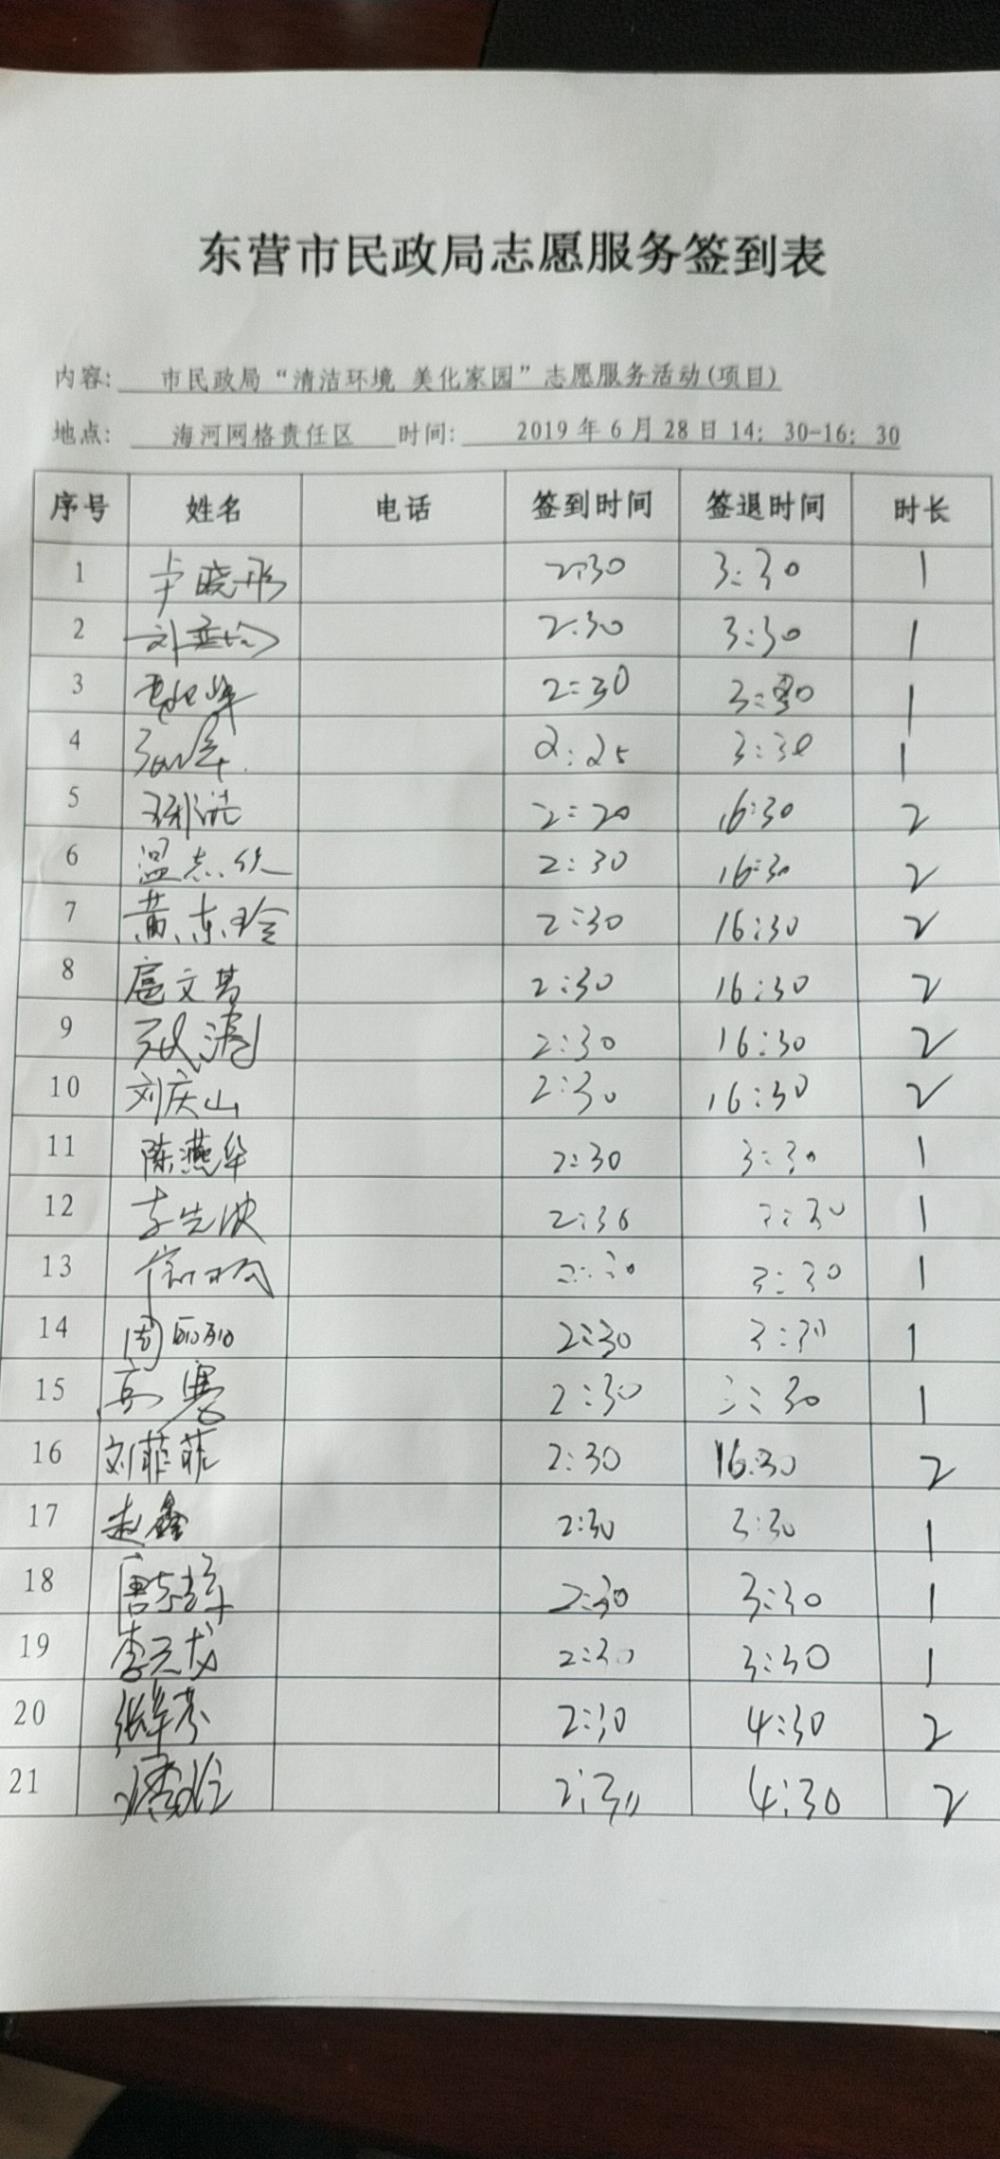 东营市民政局志愿服务签到表
内容: 市民政局“清洁环境 美化家园”志愿服务活动(项目)
地点: 海河网格责任区 时间: 2019年6月28日14:30-16:30
序号 姓名 电话 签到时间 签退时间 时长
1 晓彤 2:30 3:30 1
2 2:30 3:30 1
3 2:30 3:30 1
4 2:25 3:30 1
5 2:20 16:30 2
6 温志 2:30 16:30 2
7 黄东玲 2:30 16:30 2
8 扈文 2:30 16:30 2
9 2:30 16:30 2
10 刘庆山 2:30 16:30 2
11 陈燕华 2:30 3:30 1
12 李先波 2:30 3:30 1
13 2:30 3:30 1
14 周丽丽 2:30 3:30 1
15 2:30 3:30 1
16 刘菲菲 2:30 16:30 2
17 赵鑫 2:30 3:30 1
18 2:30 3:30 1
19 李元龙 2:30 3:30 1
20 2:30 4:30 2
21 2:30 4:30 2